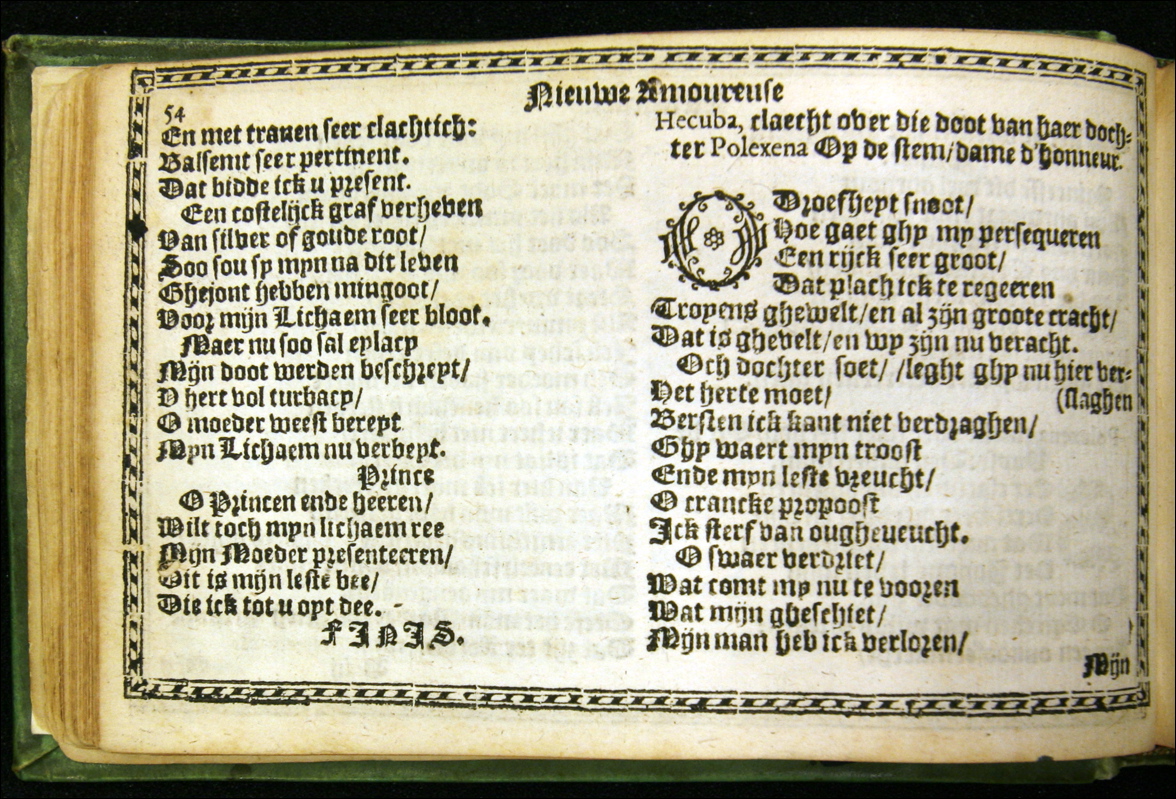 Nieuwe Amoureuse
54
En met tranen seer clachtich:
Balsemt seer pertinent.
Dat bidde ick u present.
Een costelijck graf verheven
Van silver of goude root/
Soo sou sy myn na dit leven
Ghejont hebben mingoot/
Voor mijn Lichaem seer bloot.
Maer nu soo sal eylacy
Mijn doot werden beschreyt/
V hert vol turbacy/
O moeder weest bereyt
Myn Lichaem nu verbeyt.
Prince
O Princen ende heeren/
Wilt toch myn lichaem ree
Mijn Moeder presenteeren/
Dit is mijn leste bee/
Die ick tot u oyt dee.
FINIS.
Hecuba, claecht over die doot van haer doch-
ter Polexena Op de stem/dame d'honneur.
O Droefheyt snoot/
Hoe gaet ghy my persequeren
Een rijck seer groot/
Dat plach ick te regeeren
Troyens ghewelt/en al zijn groote cracht/
Dat is ghevelt/en wy zijn nu veracht.
Och dochter soet/ /leght ghy nu hier ver-
Het herte moet/ (slaghen
Bersten ick kant niet verdraghen/
Ghy waert myn troost
Ende myn leste vreucht/
O crancke propoost
Ick sterf van ougheueucht.
O swaer verdriet/
Wat comt my nu te vooren
Wat mijn gheschiet/
Mijn man heb ick verloren/
Mijn